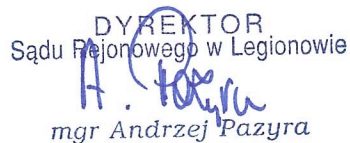 DYREKTOR
Sądu Rejonowego w Legionowie
A. Pazyra
mgr Andrzej Pazyra